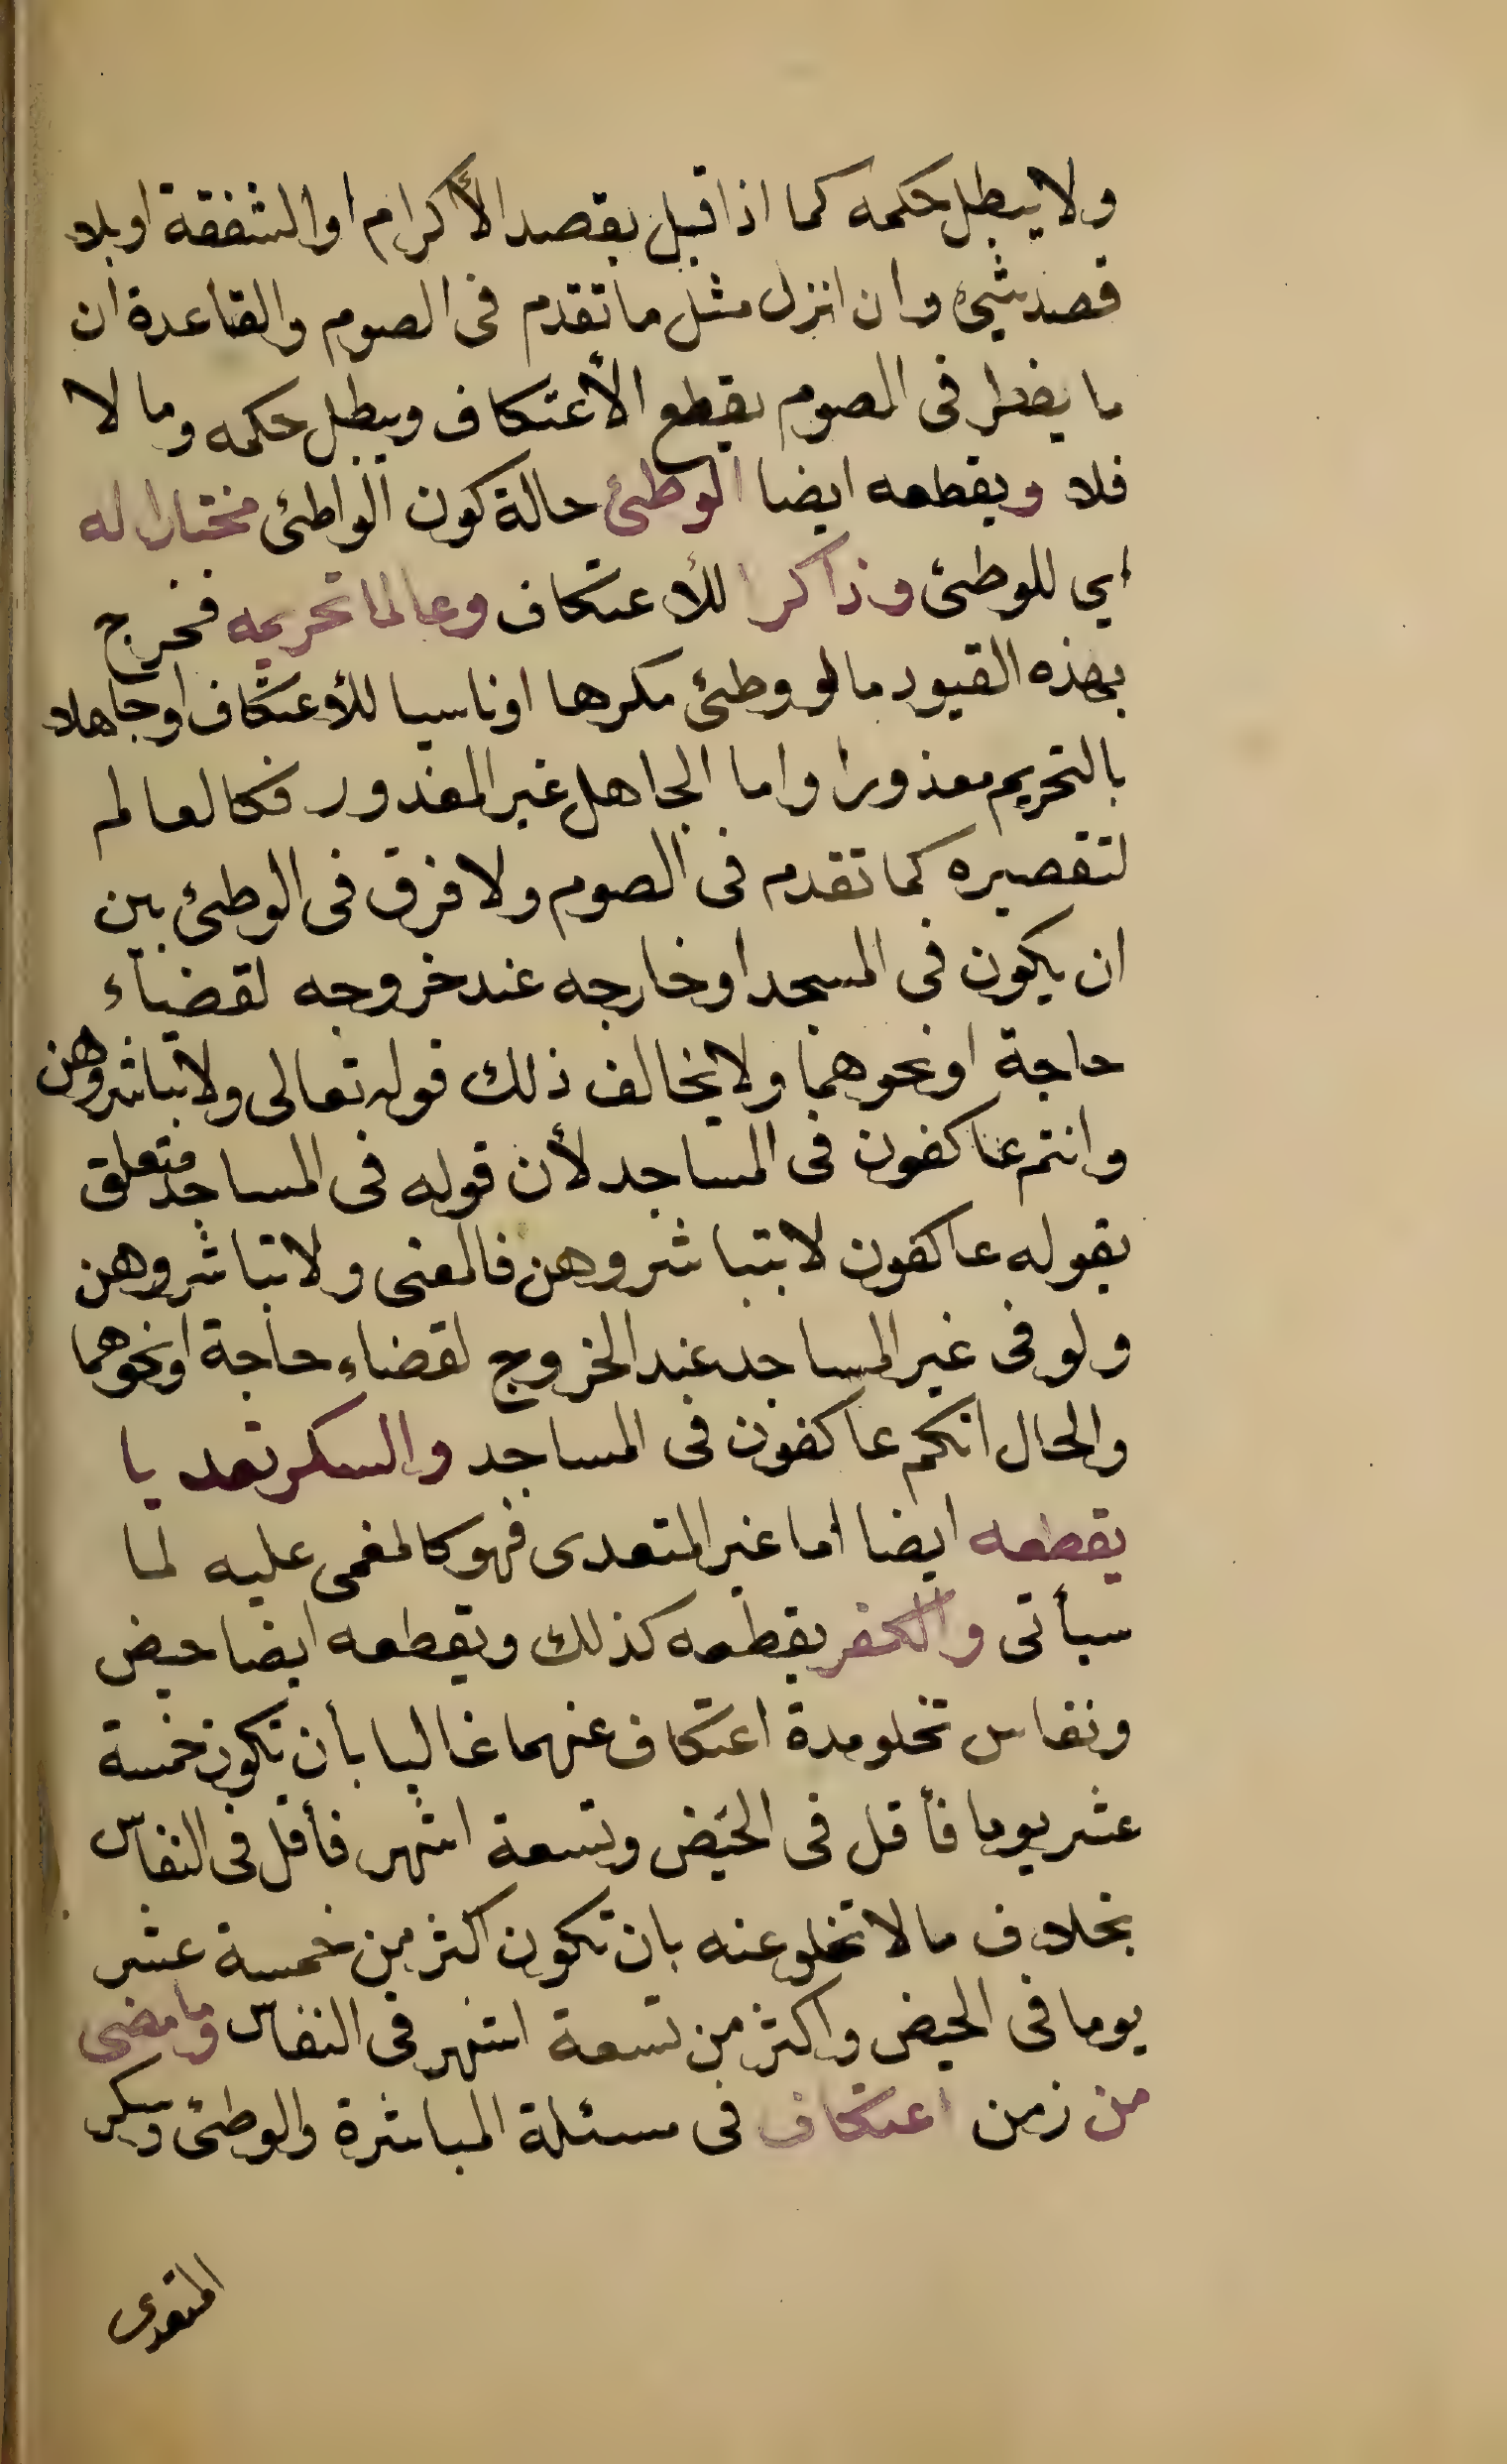 ولا يبطل حكمه كما اذا قبل بقصد الأكرام او الشفقة او بلا
قصد شيئ وان انزل مثل ما تقدم فى الصوم والقاعدة ان
ما يفطر فى الصوم يقطع الأعتكاف ويبطل حكمه وما لا
فلا ويقطعه ايضا الوطئ حالة كون الواطئ مختارا له
اي للوطئ وذاكرا للأعتكاف وعالما تحريمه فخرج
بهذه القيود ما لو وطئ مكرها او ناسيا للأعتكاف او جاهلا
بالتحريم معذورا واما الجاهل غير المعذور فكالعالم
لتقصيره كما تقدم فى الصوم ولا فرق فى الوطئ بين
ان يكون فى المسجد او خارجه عند خروجه لقضاء
حاجة او نحوهما ولا يخالف ذلك قوله تعالى ولا تباشروهن
وانتم عاكفون فى المساجد لأن قوله فى المساجد متعلق
بقوله عاكفون لا بتباشروهن فالمعنى ولا تباشروهن
ولو فى غير المساجد عند الخروج لقضاء حاجة او نحوهما
والحال انكم عاكفون فى المساجد والسكر تعديا
يقطعه ايضا اما غير المتعدى فهو كالمغمى عليه لما
سيأتى والكفر يقطعه كذلك ويقطعه ايضا حيض
ونفاس تخلو مدة اعتكاف عنهما غالبا بأن تكون خمسة
عشر يوما فأقل فى الحيض وتسعة اشهر فأقل فى النفاس
بخلاف ما لا تخلو عنه بان تكون اكثر من خمسة عشر
يوما فى الحيض واكثر من تسعة اشهر فى النفاس وما مضى
من زمن اعتكاف فى مسئلة المباشرة والوطئ وسكر
المتعدى